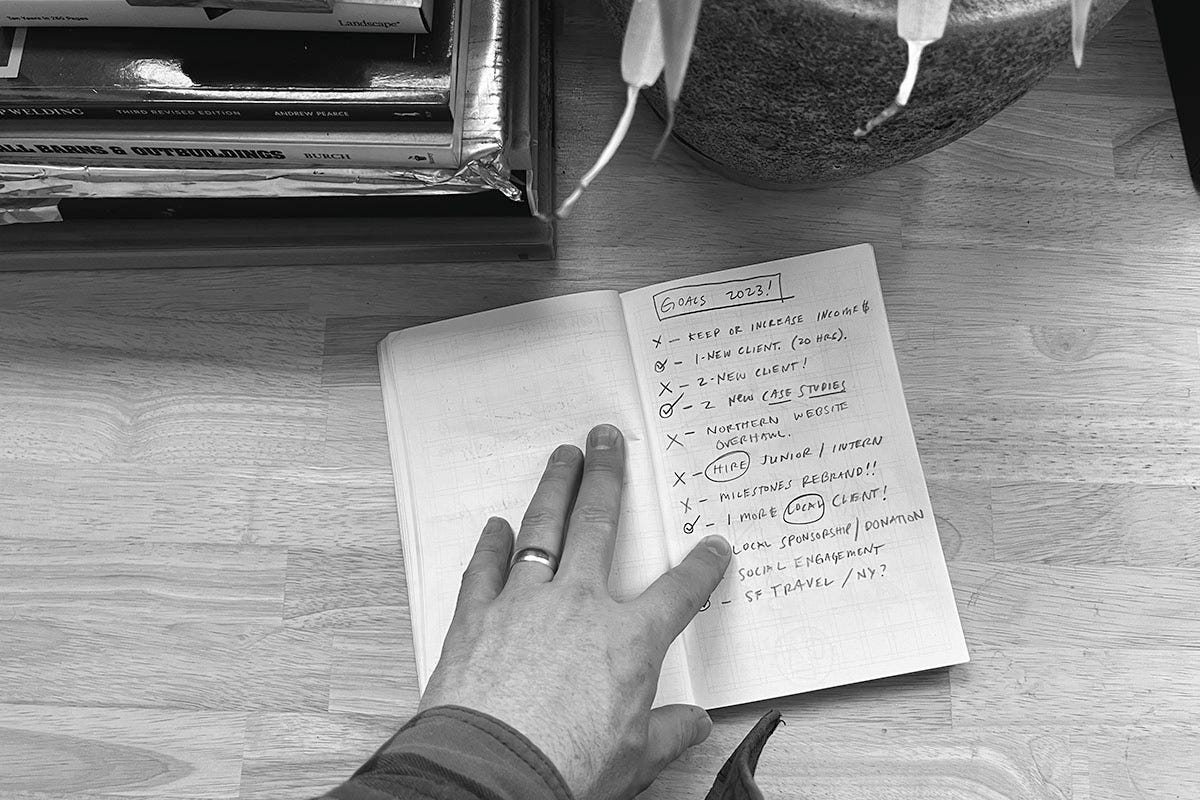 Ten Years in 260 Pages
Landscape*
WELDING THIRD REVISED EDITION ANDREW PEARCE
ALL BARNS & OUTBUILDINGS BURCH
GOALS 2023!
X — KEEP OR INCREASE INCOME $
✓ — 1-NEW CLIENT. (20 HRS).
X — 2-NEW CLIENT!
✓ — 2 NEW CASE STUDIES
X — NORTHERN WEBSITE
OVERHAUL.
X — HIRE JUNIOR / INTERN
X — MILESTONES REBRAND!!
✓ — 1 MORE LOCAL CLIENT!
LOCAL SPONSORSHIP / DONATION
SOCIAL ENGAGEMENT
— SF TRAVEL / NY?